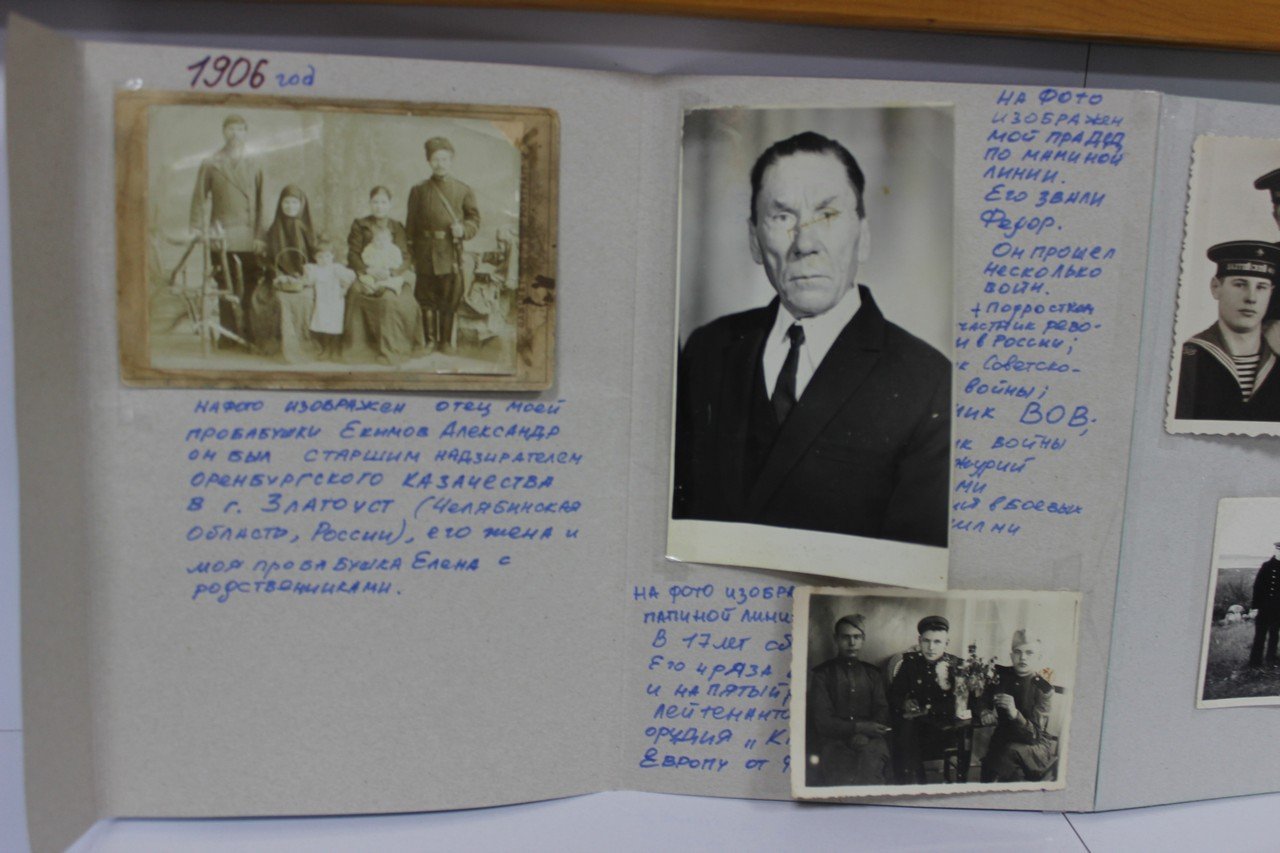 1906 год
НА ФОТО ИЗОБРАЖЕН ОТЕЦ МОЕЙ
ПРОБАБУШКИ ЕКИМОВ АЛЕКСАНДР
ОН БЫЛ СТАРШИМ НАДЗИРАТЕЛЕМ
ОРЕНБУРГСКОГО КАЗАЧЕСТВА
В г. ЗЛАТОУСТ (ЧЕЛЯБИНСКАЯ
ОБЛАСТЬ, РОССИИ), ЕГО ЖЕНА И
МОЯ ПРОБАБУШКА ЕЛЕНА С
РОДСТВЕННИКАМИ.
НА ФОТО
ИЗОБРАЖЕН
МОЙ ПРАДЕД
ПО МАМИНОЙ
ЛИНИИ.
ЕГО ЗВАЛИ
ФЕДОР.
ОН ПРОШЕЛ
НЕСКОЛЬКО
ВОЙН.
+ ПОДРОСТКОМ
ЧАСТНИК РЕВО-
И В РОССИИ;
К СОВЕТСКО-
ВОЙНЫ;
НИК ВОВ;
ИК ВОЙНЫ
ЖУРИЙ
МИ
В БОЕВЫХ
НА ФОТО ИЗОБРА
ПАПИНОЙ ЛИНИ
В 17 ЛЕТ
ЕГО 4 РАЗА
И НА ПЯТЫЙ
ЛЕЙТЕНАНТ
ОРУДИЯ „К
ЕВРОПУ ОТ